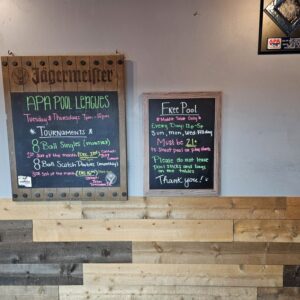 Jägermeister
APA POOL LEAGUES
Tuesday & Thursdays 7pm-11pm
TOURNAMENTS
8 Ball Singles (monthly)
1st Sun of the month
8 Ball Scotch Doubles (monthly)
3rd Sun of the month
Free Pool
*Middle Table Only*
Every Day: 12p-5p
Sun, Mon, Wed All day
Must be 21+
to shoot pool or play darts
Please do not leave
pool sticks and bags
on the tables
Thank you!